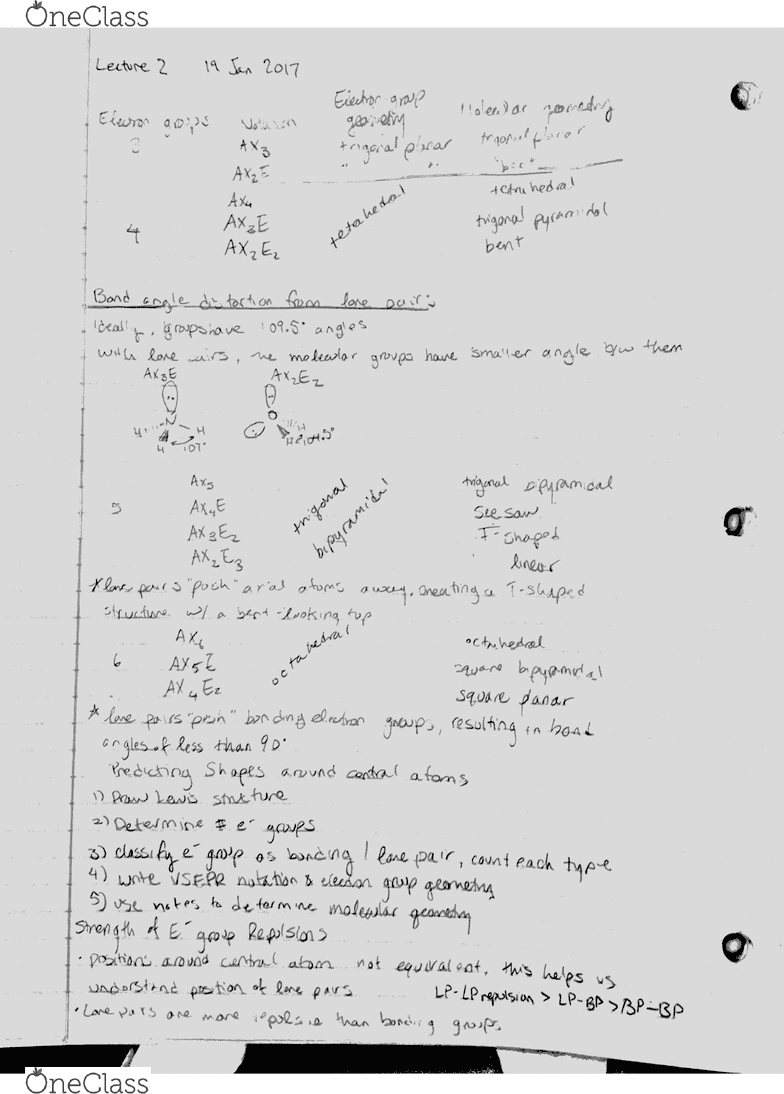 OneClass
Lecture 2 19 Jan 2017
Electron groups Notation Electron-group geometry Molecular geometry
3 AX3 trigonal planar trigonal planar
AX2E " " "bent"
AX4 tetrahedral
4 AX3E tetahedral trigonal pyramidal
AX2E2 bent
Bond angle distortion from lone pairs
Ideally, groups have 109.5° angles
With lone pairs, the molecular groups have smaller angle b/w them
AX3E AX2E2
N O
H H H
H H 107° 104.5°
AX5 trigonal bipyramidal
5 AX4E trigonal bipyramidal See saw
AX3E2 T-shaped
AX2E3 linear
* lone pairs "push" axial atoms away, creating a T-shaped
structure w/ a bent-looking top
AX6 octahedral
6 AX5E octahedral square bipyramidal
AX4E2 square planar
* lone pairs "push" bonding electron groups, resulting in bond
angles of less than 90°
Predicting Shapes around central atoms
1) Draw Lewis structure
2) Determine # e- groups
3) classify e- group as bonding / lone pair, count each type
4) write VSEPR notation & electron group geometry
5) use notes to determine molecular geometry
Strength of E- group Repulsions
· positions around central atom not equivalent, this helps us
understand position of lone pairs LP-LP repulsion > LP-BP > BP-BP
· Lone pairs are more repulsive than bonding groups.
OneClass